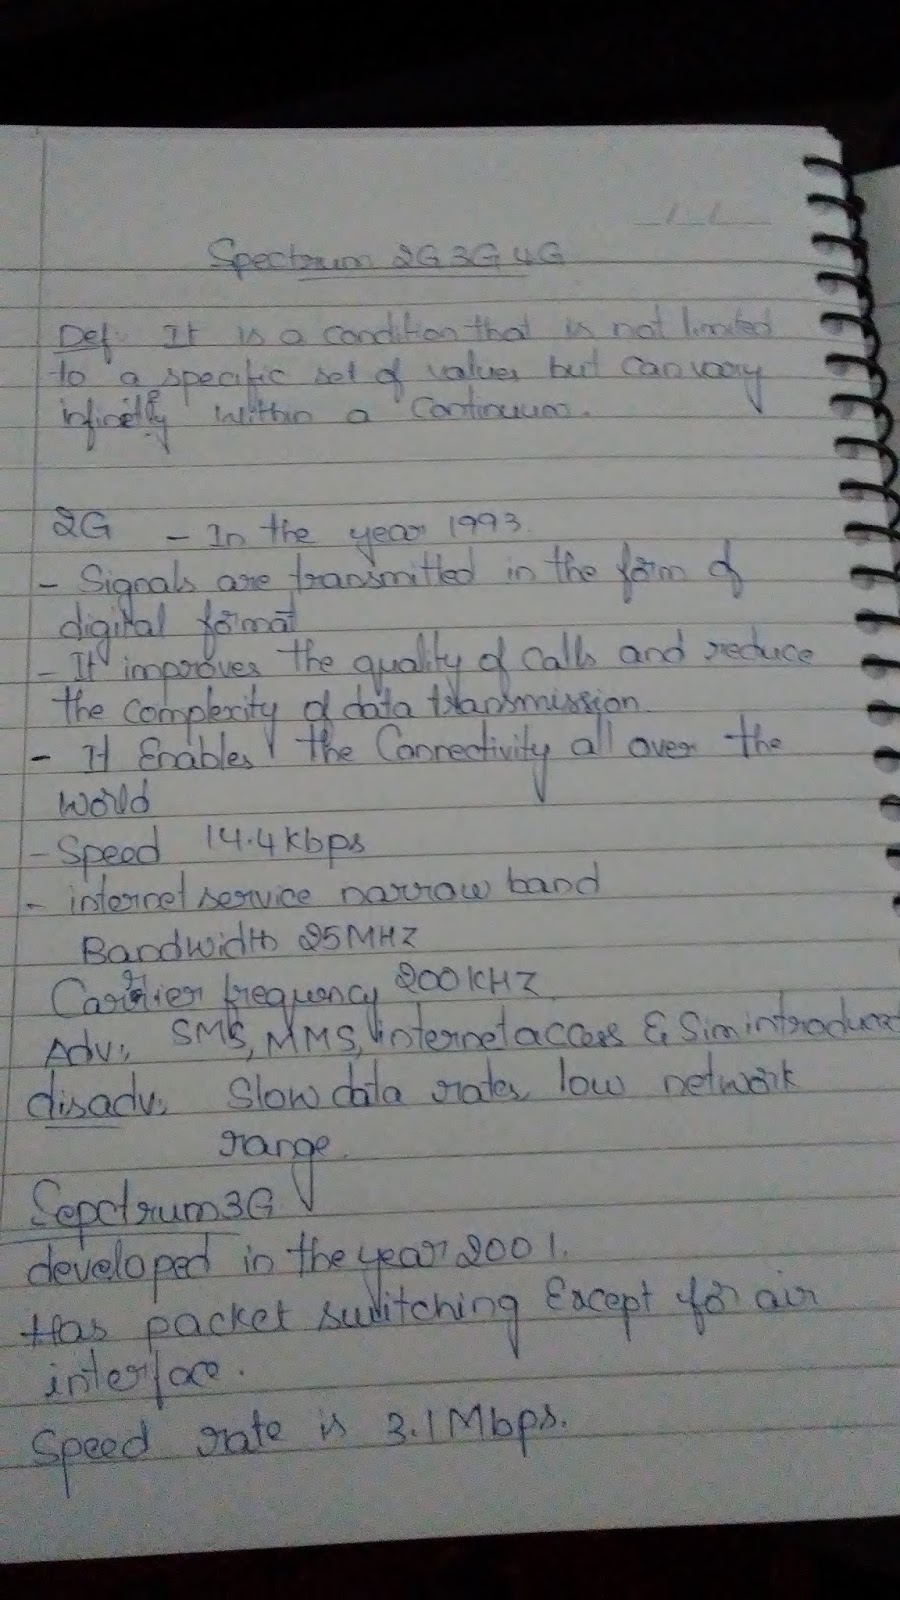 Spectrum 2G 3G 4G
Def: It is a condition that is not limited
to a specific set of values but can vary
infinitely within a Continuum.
2G - In the year 1993.
- Signals are transmitted in the form of
digital format
- It improves the quality of calls and reduce
the complexity of data transmission
- It Enables the Connectivity all over the
world
- Speed 14.4kbps
- internet service narrow band
Bandwidth 25MHZ
Carrier frequency 200KHZ
Adv: SMS, MMS, internet access & Sim introduced
disadv: Slow data rates, low network
range.
Sepctrum 3G
developed in the year 2001.
Has packet switching Except for air
interface.
Speed rate is 3.1Mbps.